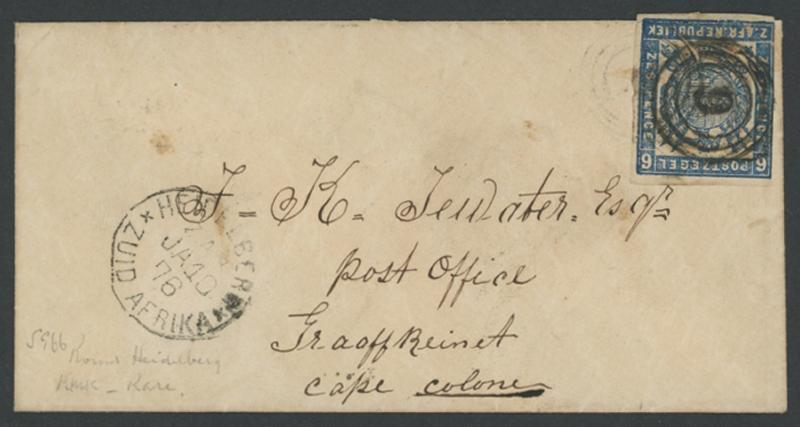 Z. AFR. REPUBLIEK
ZES PENCE
6 POSTZEGEL 6
J. K. TeWater. Esqr
Post Office
Graaff Reinet
Cape Colone
HEIDELBERG
JA 10
76
ZUID AFRIKA
Round Heidelberg
Rare.